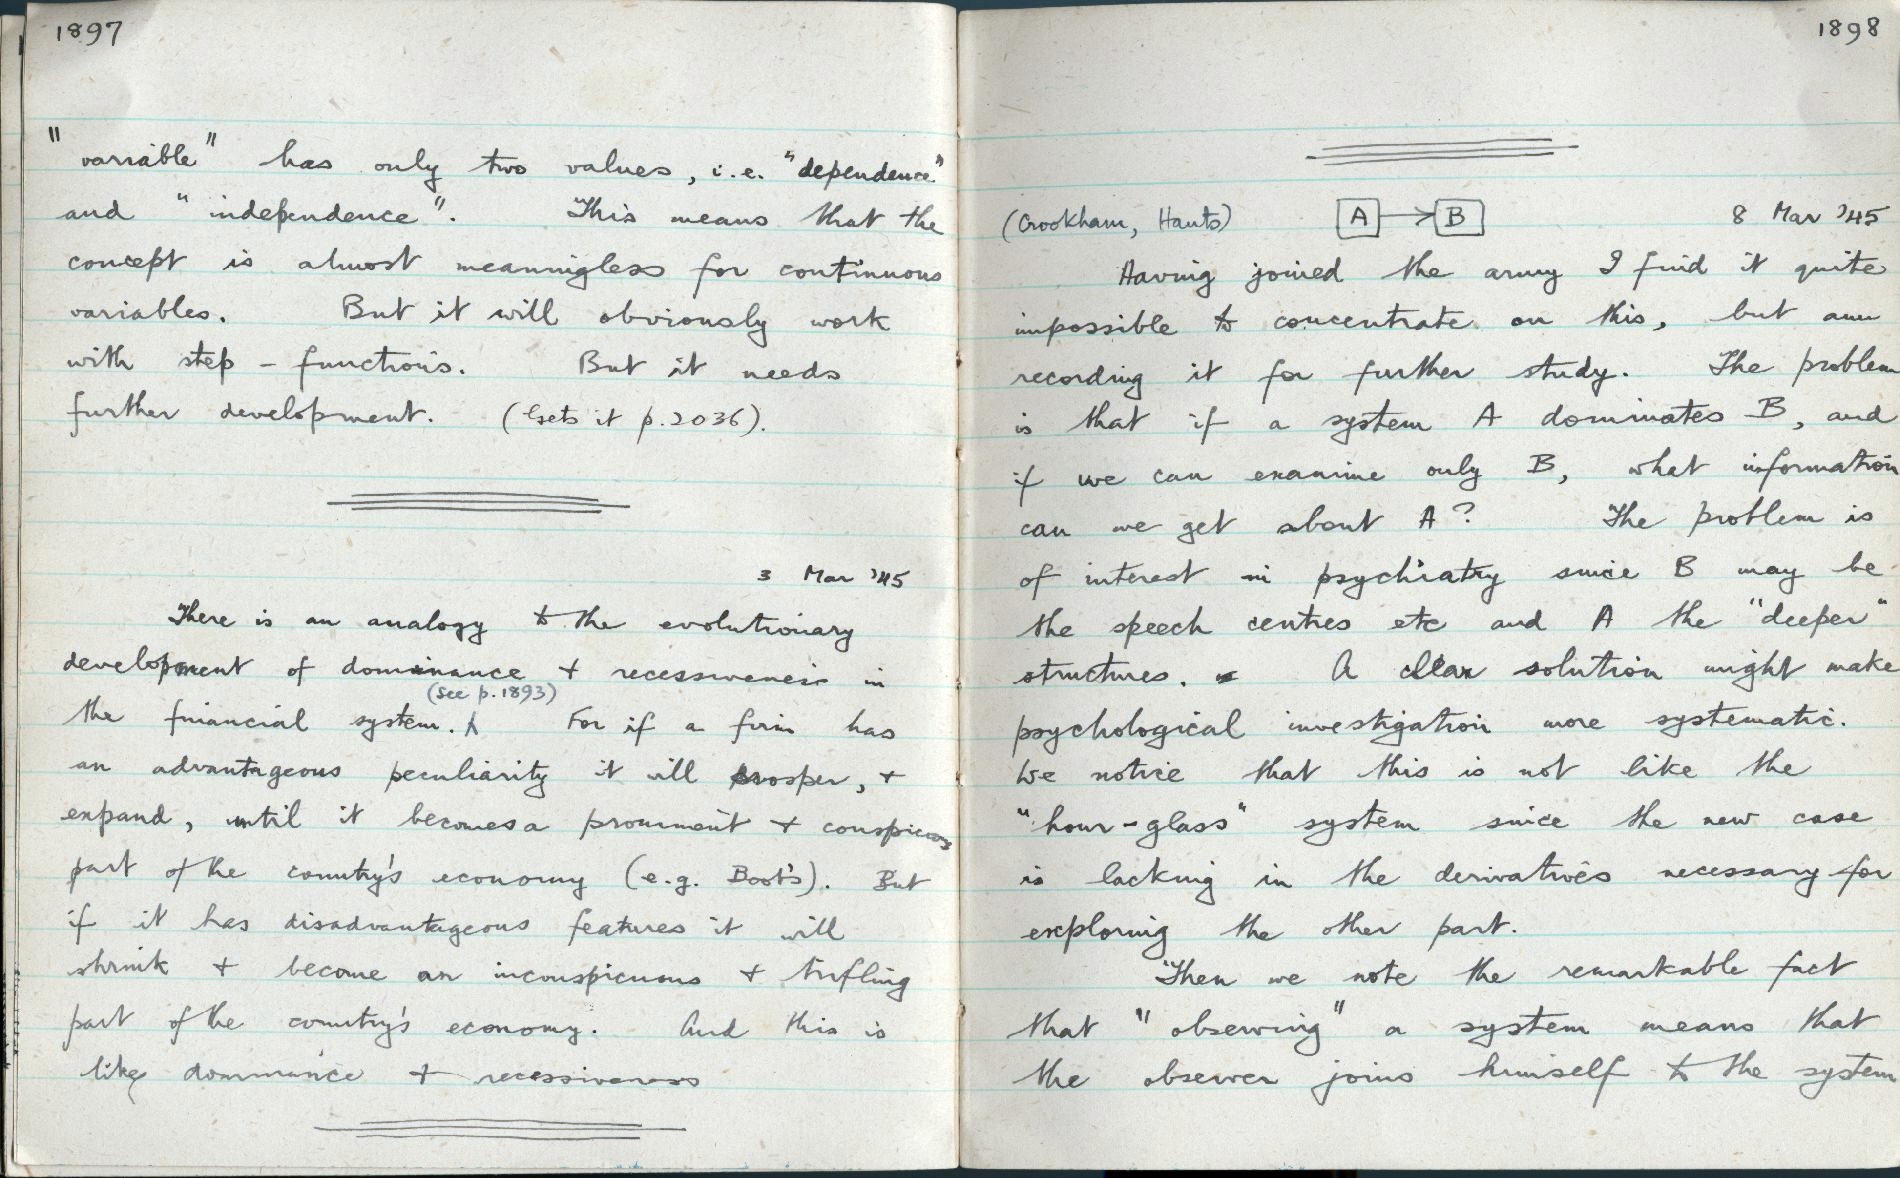 1897
"variable" has only two values, i.e. "dependence"
and "independence". This means that the
concept is almost meaningless for continuous
variables. But it will obviously work
with step-functions. But it needs
further development. (Gets it p.2036).
3 Mar '45
There is an analogy to the evolutionary
development of dominance + recessiveness in
(See p.1893)
the financial system. For if a firm has
an advantageous peculiarity it will prosper, +
expand, until it becomes a prominent + conspicuous
part of the country's economy (e.g. Boot's). But
if it has disadvantageous features it will
shrink + become an inconspicuous + trifling
part of the country's economy. And this is
like dominance + recessiveness
1898
(Crookham, Hants) A → B 8 Mar '45
Having joined the army I find it quite
impossible to concentrate on this, but am
recording it for further study. The problem
is that if a system A dominates B, and
if we can examine only B, what information
can we get about A? The problem is
of interest in psychiatry since B may be
the speech centres etc and A the "deeper"
structures. A clear solution might make
psychological investigation more systematic.
We notice that this is not like the
"hour-glass" system since the new case
is lacking in the derivatives necessary for
exploring the other part.
Then we note the remarkable fact
that "observing" a system means that
the observer joins himself to the system